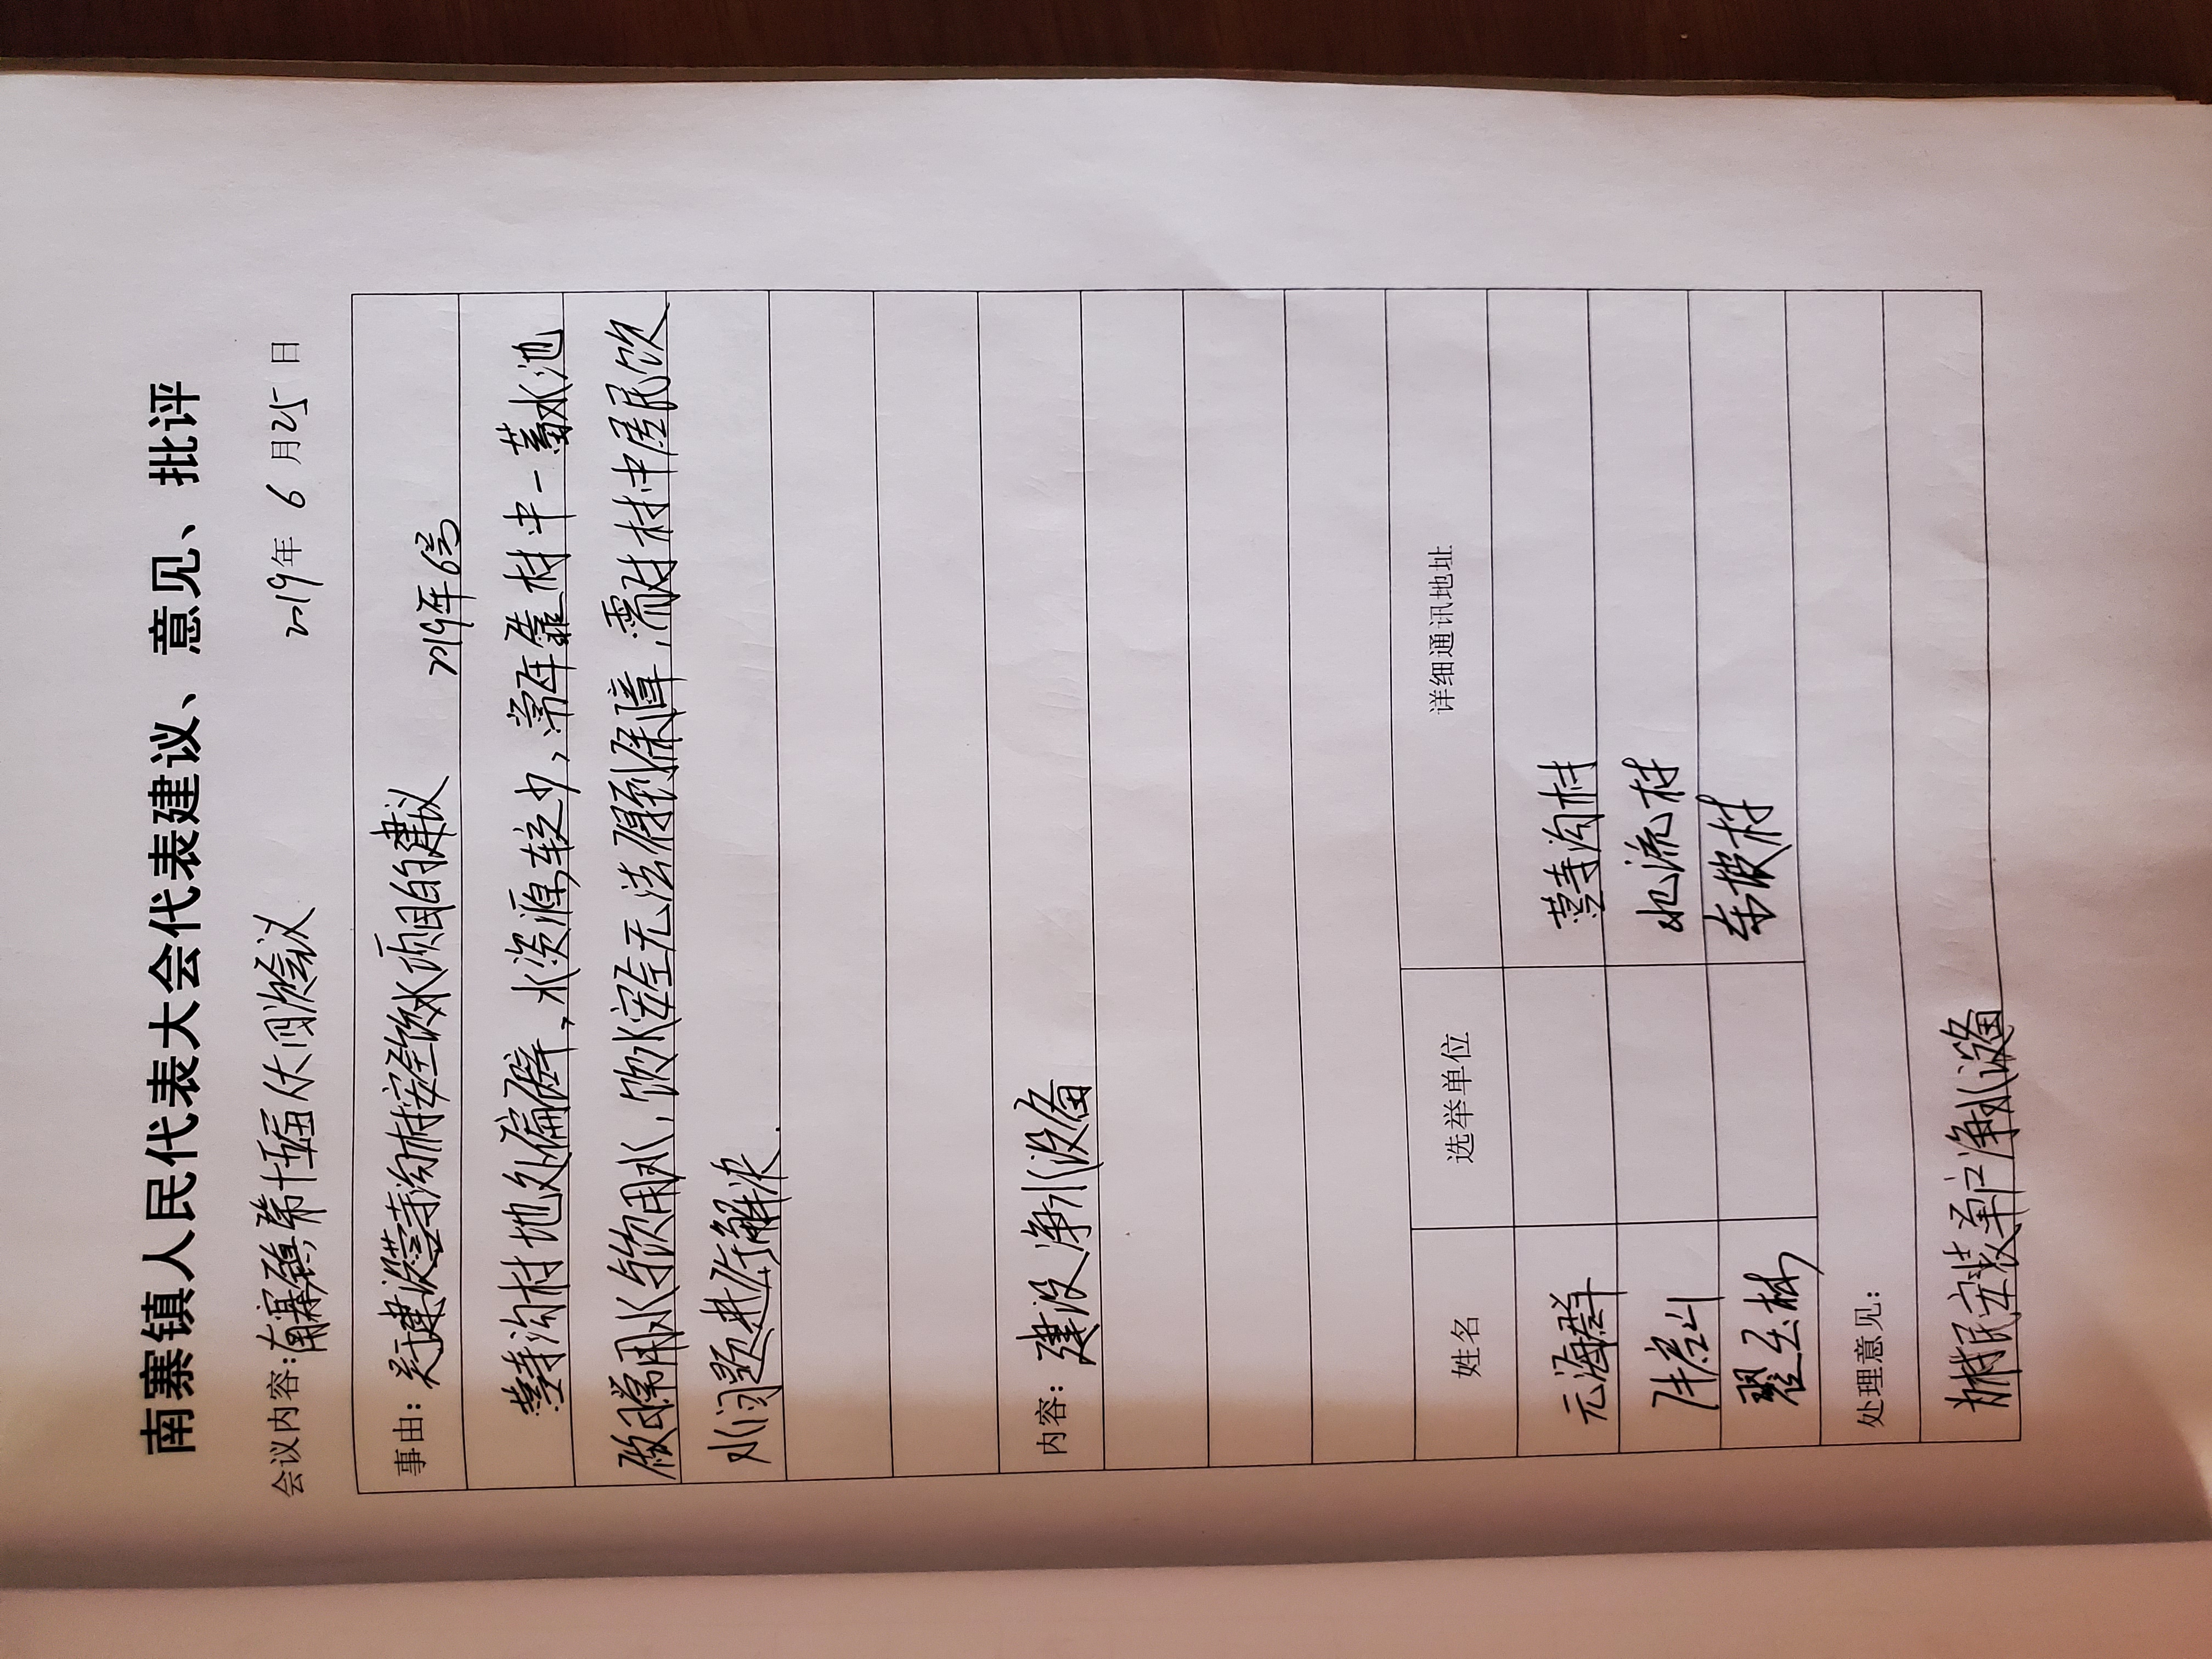 南寨镇人民代表大会代表建议、意见、批评
会议内容：南寨镇第十五届人大四次会议 2019年 6 月25 日
事由：关于建设营寺沟村安全饮水项目的建议
2019年6号
营寺沟村地处偏僻，水资源较少，常年靠村中一蓄水池
做日常用水与饮用水，饮水安全无法得到保障，需对村中居民饮
水问题进行解决.
内容：建设净水设备
姓名 选举单位 详细通讯地址
元海群 营寺沟村
北流村
东坡村
处理意见：
为村民安装单户净水设备